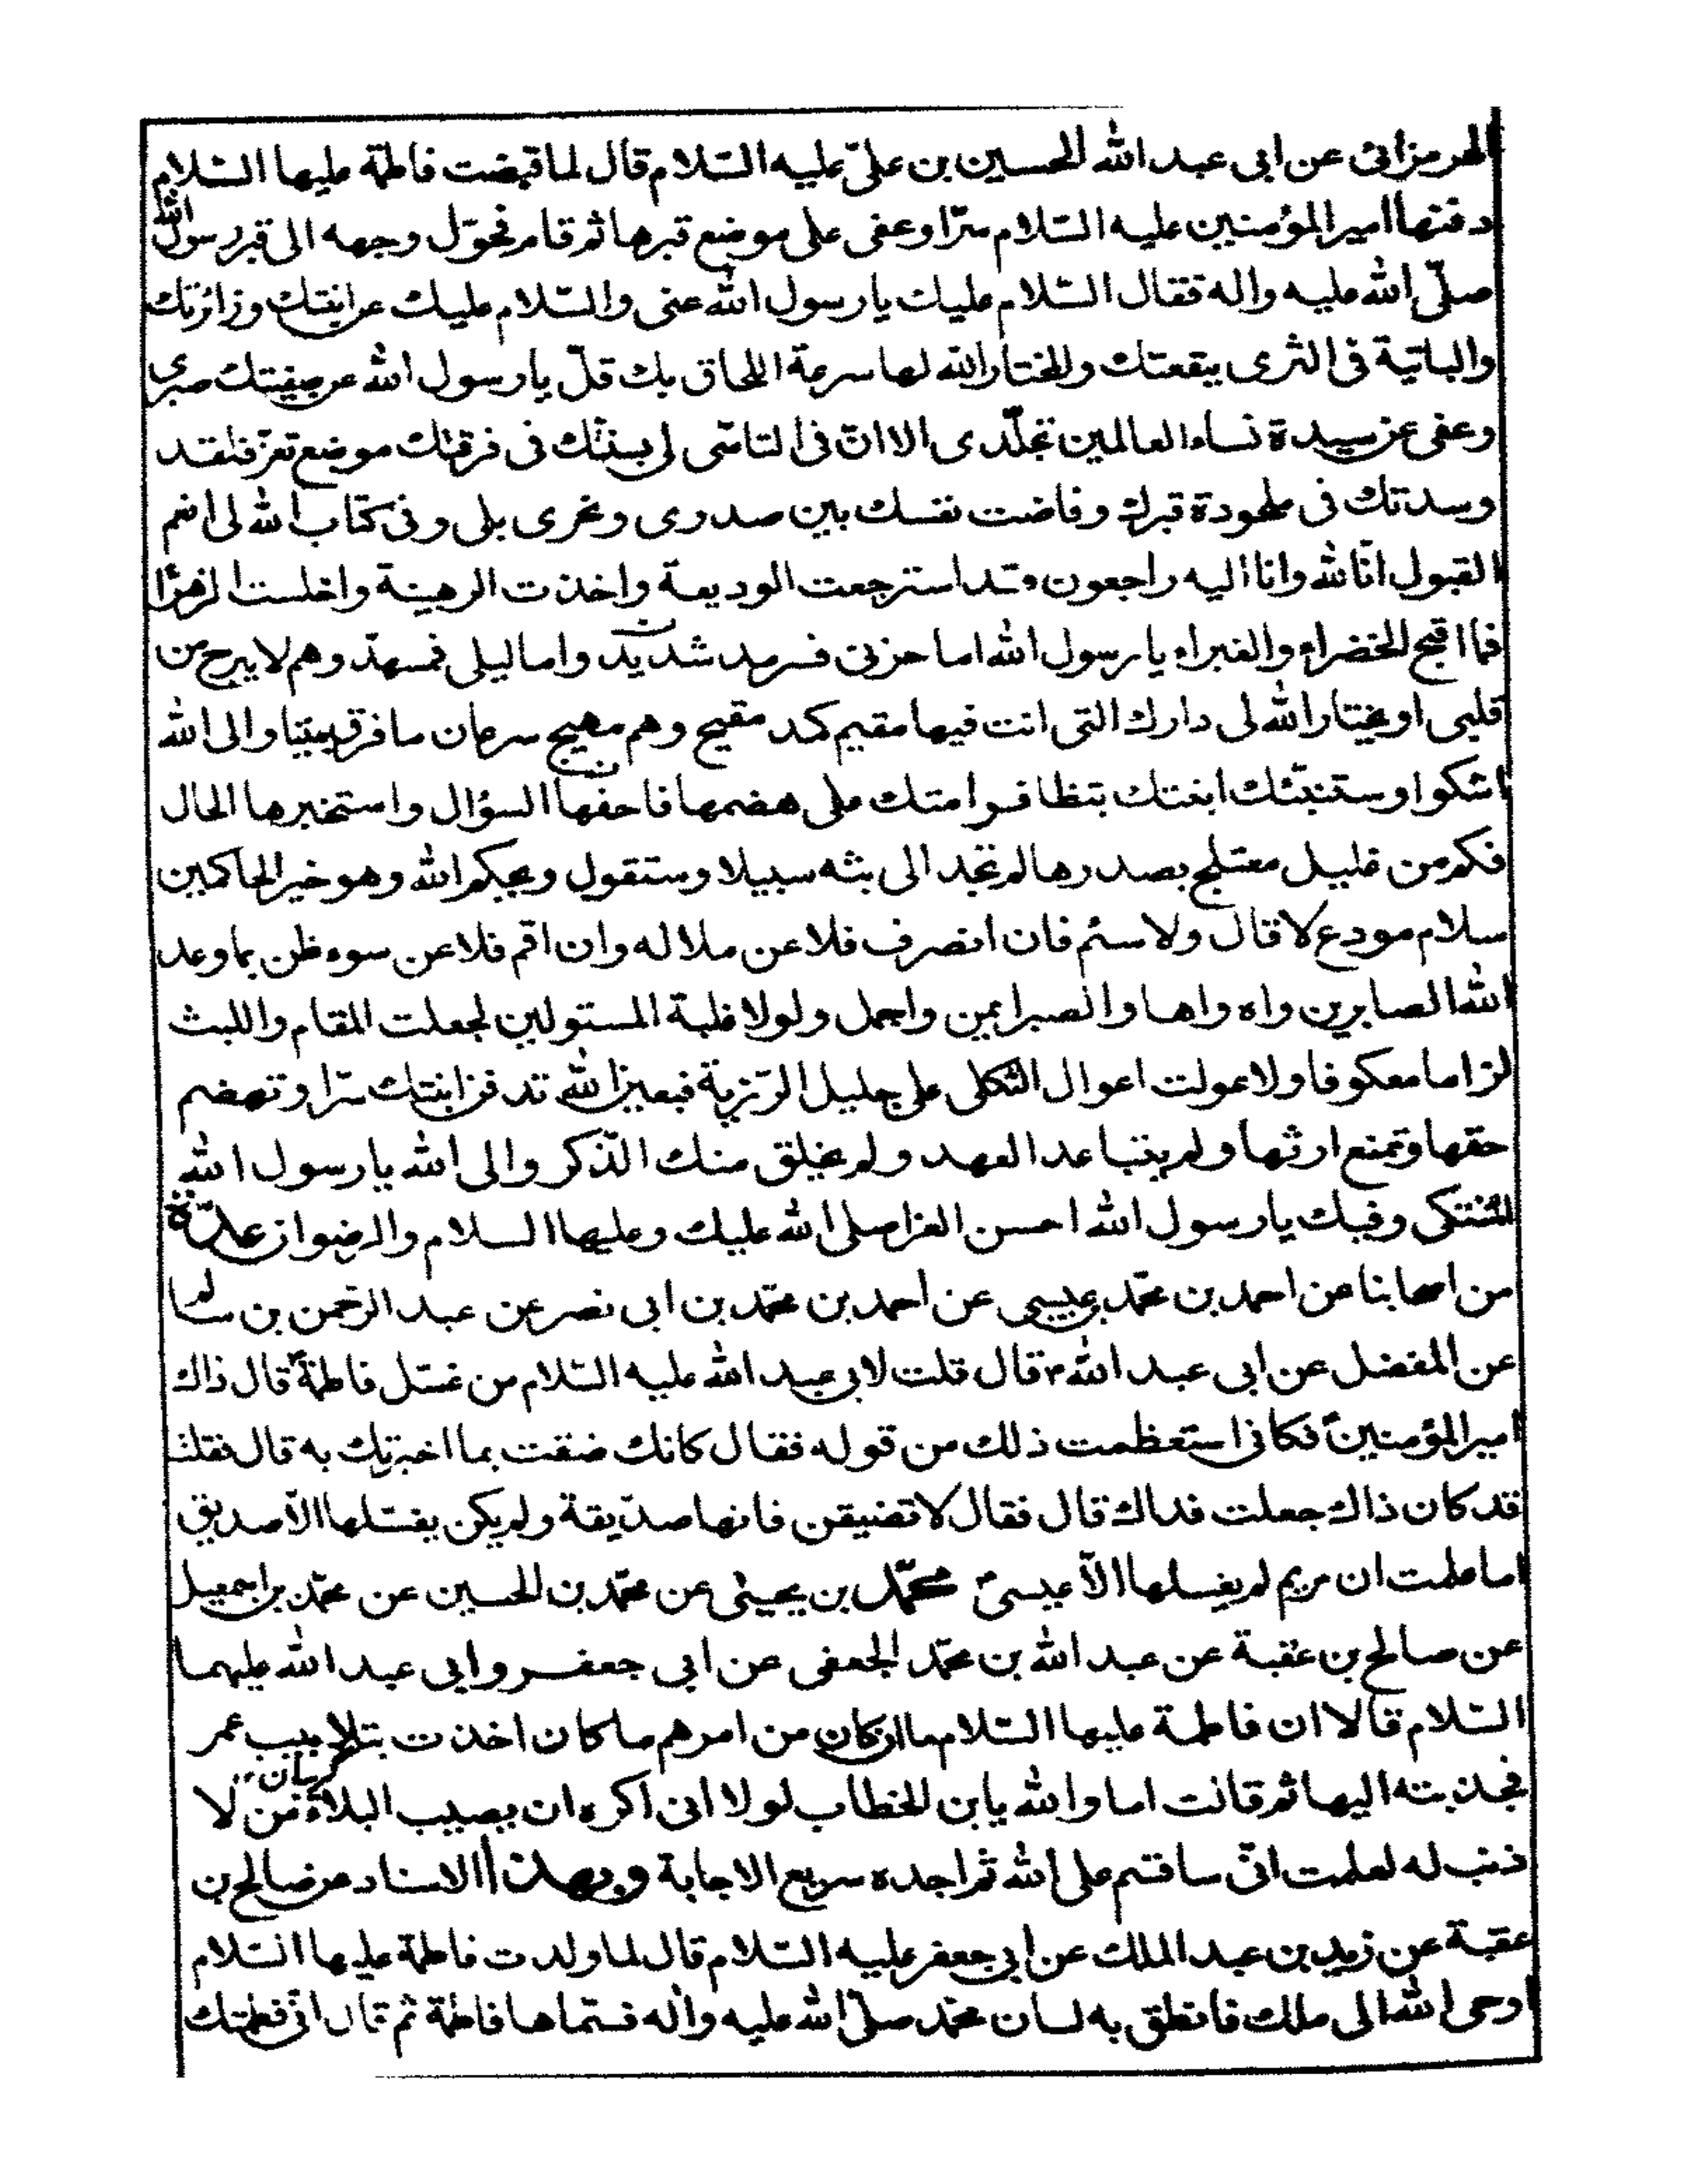 الهرمزانی عن ابی عبد الله الحسین بن علیّ علیه السّلام قال لما قبضت فاطمة علیها السّلام
دفنها امیر المؤمنین علیه السّلام سرّا وعفی علی موضع قبرها ثم قام فحوّل وجهه الی قبر رسول الله
صلّی الله علیه واله فقال السّلام علیك یا رسول الله عنی والسّلام علیك عن ابنتك وزائرتك
والباتیة فی الثری ببقعتك والمختار الله لها سرعة اللحاق بك قلّ یا رسول الله عن صفیتك صبری
وعفی عن سیدة نساء العالمین تجلّدی الا انّ فی التاسّی لی بسنّتك فی فرقتك موضع تعزّ فلقد
وسدتك فی ملحودة قبرك وفاضت نفسك بین صدری ونحری بلی وفی کتاب الله لی انعم
القبول انّا لله وانا الیه راجعون قد استرجعت الودیعة واخذت الرهینة واخلست الزهرا
فما اقبح الخضراء والغبراء یا رسول الله اما حزنی فسرمد شدید واما لیلی فمسهدّ وهم لا یبرح من
قلبی او یختار الله لی دارك التی انت فیها مقیم کمد مقیح وهم مهیج سرعان ما فرق بیننا والی الله
اشکو او ستنبّئك ابنتك بتظافر امتك علی هضمها فاحفها السؤال واستخبرها الحال
فکم من غلیل معتلج بصدرها لم تجد الی بثه سبیلا وستقول ویحکم الله وهو خیر الحاکمین
سلام مودع لا قال ولا سئم فان انصرف فلا عن ملالة وان اقم فلا عن سوء ظن بما وعد
الله الصابرین واه واها والصبر ایمن واجمل ولولا غلبة المستولین لجعلت المقام واللبث
لزاما معکوفا ولاعولت اعوال الثکلی علی جلیل الرّزیة فبعین الله تدفن ابنتك سرّا وتهضم
حقها وتمنع ارثها ولم یتباعد العهد ولم یخلق منك الذّکر والی الله یا رسول الله
المشتکی وفیك یا رسول الله احسن العزا صلی الله علیك وعلیها السلام والرضوان عدّة
من اصحابنا عن احمد بن محمّد بن عیسی عن احمد بن محمّد بن ابی نصر عن عبد الرحمن بن سالم
عن المفضل عن ابی عبد الله ع قال قلت لابی عبد الله علیه السّلام من غسّل فاطمة ع قال ذاك
امیر المؤمنین ع فکانی استعظمت ذلك من قوله فقال کانك ضقت بما اخبرتك به قال فقلت
قد کان ذاك جعلت فداك قال فقال لا تضیقن فانها صدّیقة ولم یکن یغسّلها الّا صدیق
اما علمت ان مریم لم یغسلها الّا عیسی ع محمّد بن یحیی عن محمّد بن الحسین عن محمّد بن اسمعیل
عن صالح بن عقبة عن عبد الله بن محمّد الجعفی عن ابی جعفر وابی عبد الله علیهما
السّلام قالا ان فاطمة علیها السّلام لما ان کان من امرهم ما کان اخذت بتلابیب عمر
فجذبته الیها ثم قالت اما والله یا بن الخطاب لولا انی اکره ان یصیب البلاء من لا
ذنب له لعلمت انّی ساقسم علی الله ثم اجده سریع الاجابة وبهذا الاسناد عن صالح بن
عقبة عن زید بن عبد الملك عن ابی جعفر علیه السّلام قال لما ولدت فاطمة علیها السّلام
اوحی الله الی ملك فانطلق به لسان محمّد صلّی الله علیه واله فسّماها فاطمة ثم قال انّی فطمتك